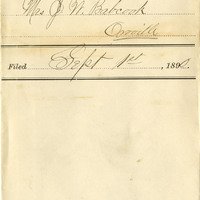 Mrs J. W. Babcook
Oroville
Filed Sept 1st, 189